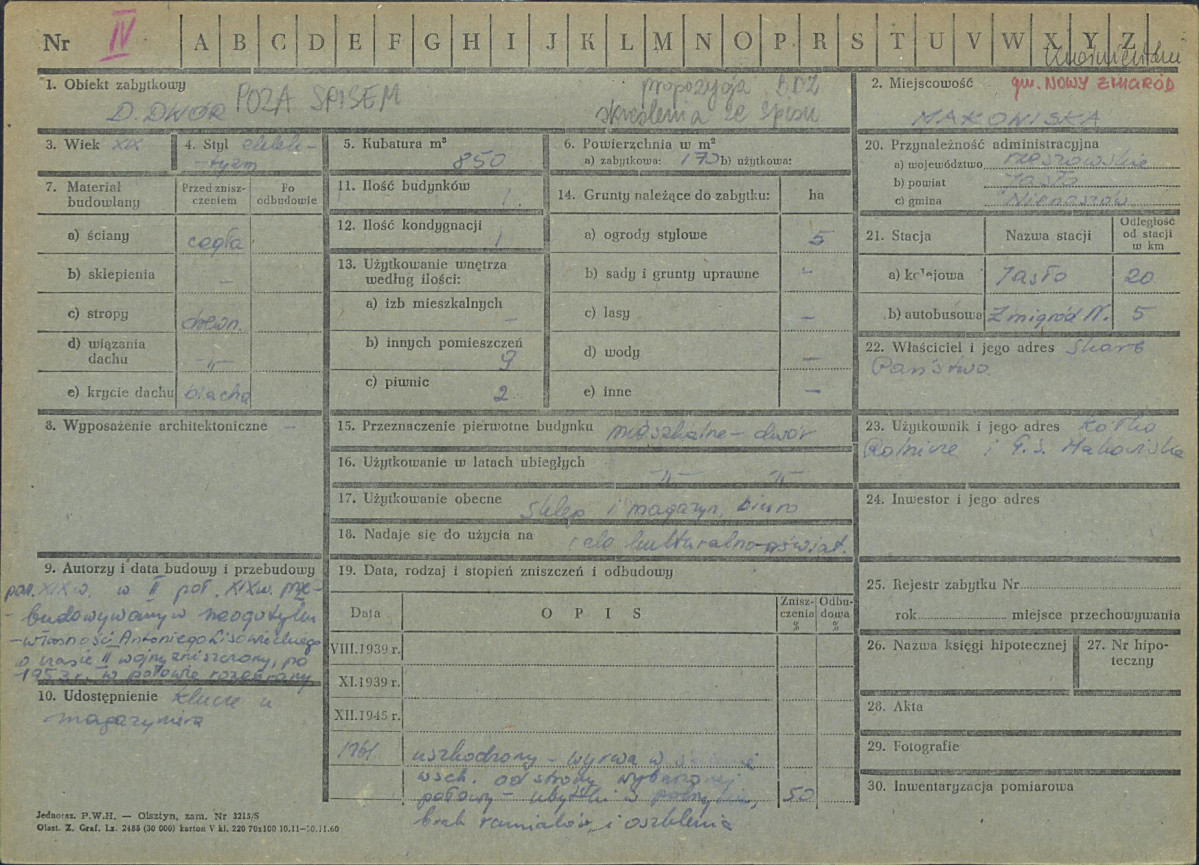 Nr IV A B C D E F G H I J K L M N O P R S T U V W X Y Z
1. Obiekt zabytkowy
D. DWÓR POZA SPISEM
propozycja BDZ
skreślenia ze spisu
2. Miejscowość gm. NOWY ŻMIGRÓD
MAKOWISKA
3. Wiek XIX
4. Styl eklek-
-tyzm
5. Kubatura m³
850
6. Powierzchnia w m²
a) zabytkowa: 170 b) użytkowa:
7. Materiał budowlany
Przed zniszczeniem
Po odbudowie
a) ściany cegła
b) sklepienia –
c) stropy drewn.
d) wiązania dachu -"-
e) krycie dachu blacha
8. Wyposażenie architektoniczne –
9. Autorzy i data budowy i przebudowy
poł. XIX w. w II poł. XIX w. prze-
- budowywany w neogotyku
- własność Antoniego Lisowieckiego
w czasie II wojny zniszczony, po
1953 r. w połowie rozebrany
10. Udostępnienie klucze u
magazyniera
11. Ilość budynków 1.
12. Ilość kondygnacji 1
13. Użytkowanie wnętrza według ilości:
a) izb mieszkalnych –
b) innych pomieszczeń 9
c) piwnic 2
14. Grunty należące do zabytku: ha
a) ogrody stylowe 5
b) sady i grunty uprawne –
c) lasy –
d) wody –
e) inne –
15. Przeznaczenie pierwotne budynku mieszkalne – dwór
16. Użytkowanie w latach ubiegłych -"- -"-
17. Użytkowanie obecne sklep i magazyn, biuro
18. Nadaje się do użycia na cele kulturalno-oświat.
19. Data, rodzaj i stopień zniszczeń i odbudowy
Data OPIS Zniszczenia % Odbudowa %
VIII.1939 r.
XI.1939 r.
XII.1945 r.
1961 uszkodzony – wyrwa w
wsch. od strony rozebranej
połowy – ubytki w
brak ramiaków i oszklenia 50
20. Przynależność administracyjna
a) województwo rzeszowskie
b) powiat Jasło
c) gmina Nienaszów
21. Stacja Nazwa stacji Odległość od stacji w km
a) kolejowa Jasło 20
b) autobusowa Żmigród N. 5
22. Właściciel i jego adres Skarb
Państwa
23. Użytkownik i jego adres Kółko
Rolnicze i G.S. Makowiska
24. Inwestor i jego adres
25. Rejestr zabytku Nr
rok miejsce przechowywania
26. Nazwa księgi hipotecznej
27. Nr hipoteczny
28. Akta
29. Fotografie
30. Inwentaryzacja pomiarowa
Jednoraz. P.W.H. — Olsztyn, zam. Nr 3215/S
Olszt. Z. Graf. Lz. 2485 (30 000) karton V kl. 220 70x100 10.11—30.11.60